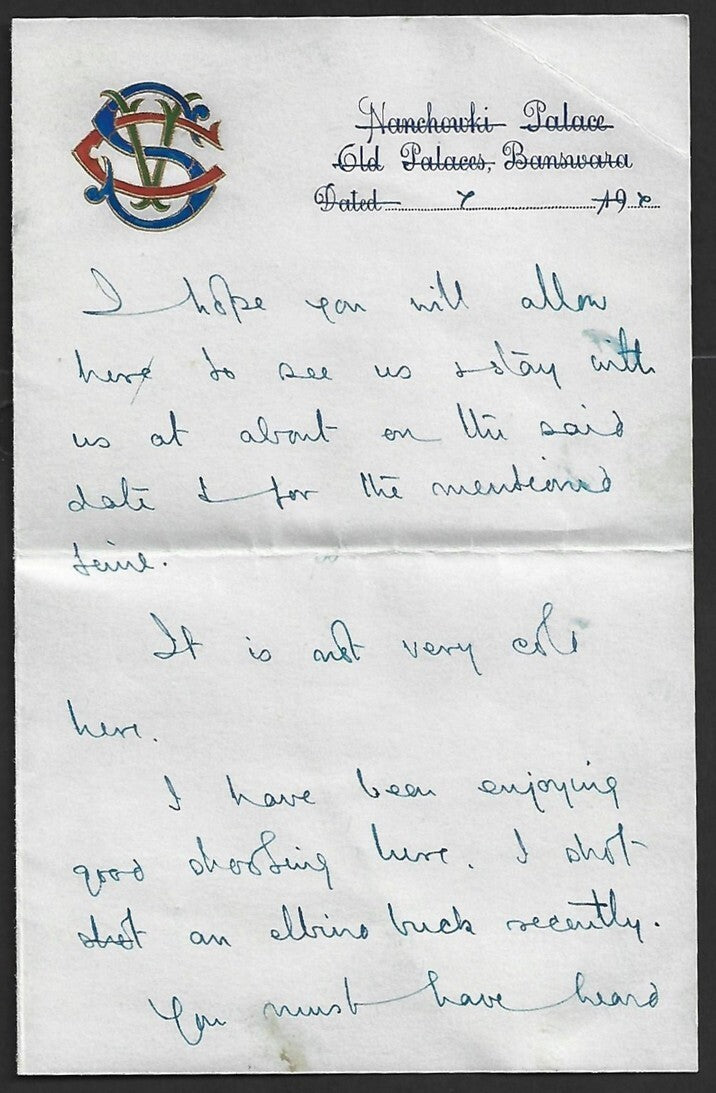 Nanchowki Palace
Old Palaces, Banswara
Dated 19
I hope you will allow
her to see us & stay with
us at about on the said
date & for the mentioned
time.
It is not very cold
here.
I have been enjoying
good shooting here. I shot
shot an albino buck recently.
You must have heard